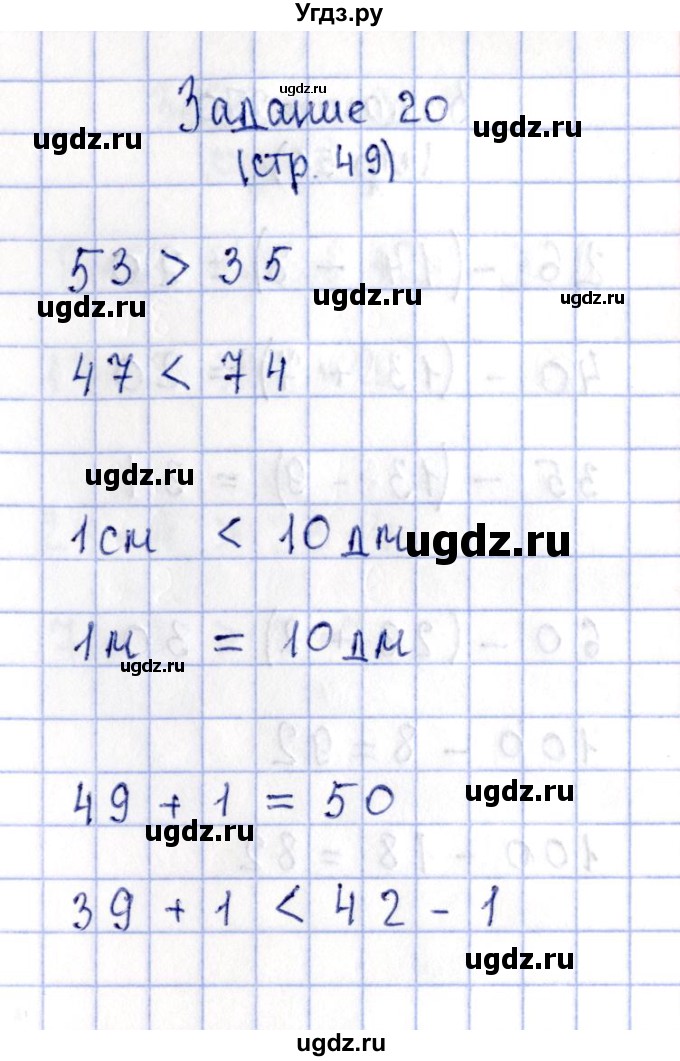 Угдз.ру
ugdz.ru
Задание 20
ugdz.ru
ugdz.ru
(стр. 49)
53 > 35
ugdz.ru
ugdz.ru
ugdz.ru
47 < 74
ugdz.ru
1 см < 10 дм
ugdz.ru
1 м = 10 дм
ugdz.ru
49 + 1 = 50
ugdz.ru
ugdz.ru
39 + 1 < 42 - 1
ugdz.ru
ugdz.ru